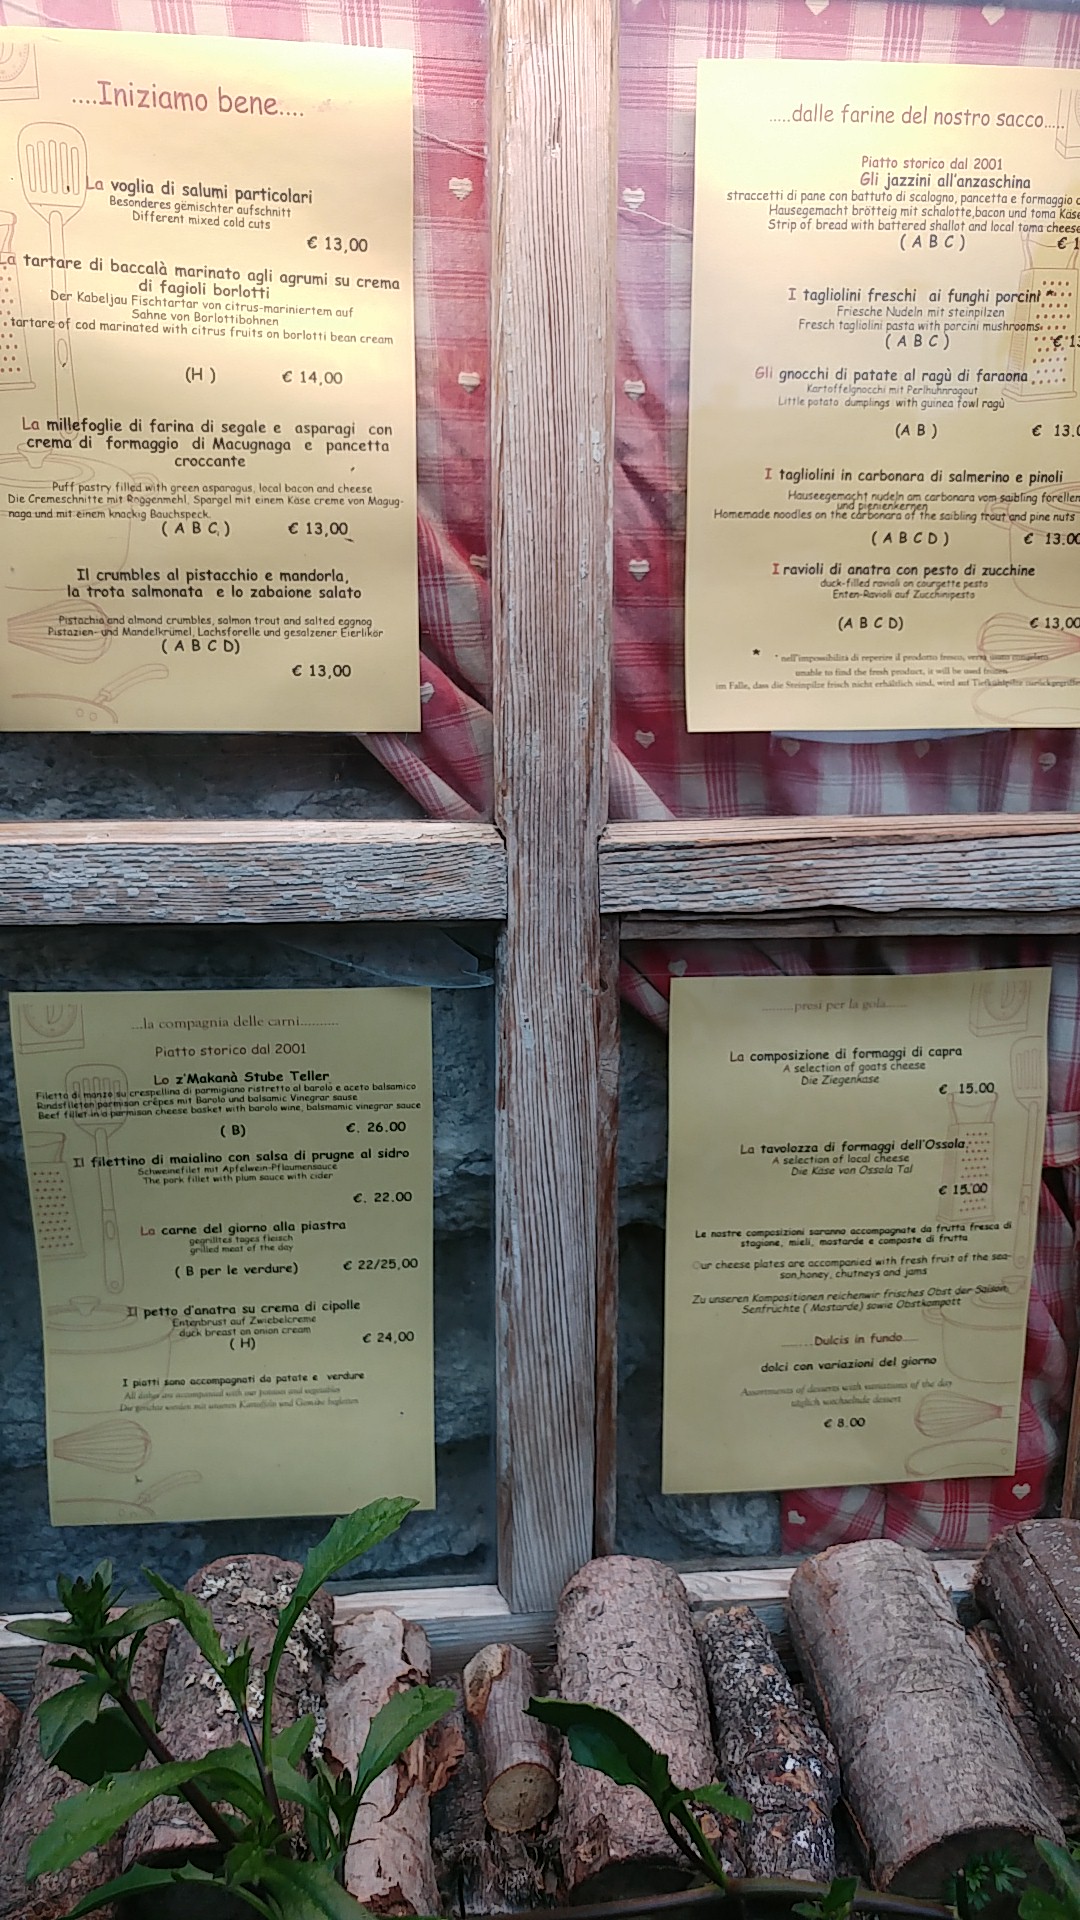 ....Iniziamo bene....
La voglia di salumi particolari
Besonderes gemischter aufschnitt
Different mixed cold cuts
€ 13,00
La tartare di baccalà marinato agli agrumi su crema
di fagioli borlotti
Der Kabeljau Fischtartar von citrus-mariniertem auf
Sahne von Borlottibohnen
tartare of cod marinated with citrus fruits on borlotti bean cream
(H ) € 14,00
La millefoglie di farina di segale e asparagi con
crema di formaggio di Macugnaga e pancetta
croccante
Puff pastry filled with green asparagus, local bacon and cheese
Die Cremeschnitte mit Roggenmehl, Spargel mit einem Käse creme von Magug-
naga und mit einem knackig Bauchspeck.
( A B C ) € 13,00
Il crumbles al pistacchio e mandorla,
la trota salmonata e lo zabaione salato
Pistachio and almond crumbles, salmon trout and salted eggnog
Pistazien- und Mandelkrümel, Lachsforelle und gesalzener Eierlikör
( A B C D)
€ 13,00
.....dalle farine del nostro sacco.....
Piatto storico dal 2001
Gli jazzini all'anzaschina
straccetti di pane con battuto di scalogno, pancetta e formaggio
Hausegemacht brötteig mit schalotte,bacon und toma Käse
Strip of bread with battered shallot and local toma cheese
( A B C ) € 1
I tagliolini freschi ai funghi porcini *
Friesche Nudeln mit steinpilzen
Fresh tagliolini pasta with porcini mushrooms
( A B C ) € 13
Gli gnocchi di patate al ragù di faraona
Kartoffelgnocchi mit Perlhuhnragout
Little potato dumplings with guinea fowl ragù
(A B ) € 13.0
I tagliolini in carbonara di salmerino e pinoli
Hauseegemacht nudeln am carbonara vom saibling forellen
und pienienkernen
Homemade noodles on the carbonara of the saibling trout and pine nuts
( A B C D ) € 13.00
I ravioli di anatra con pesto di zucchine
duck-filled ravioli on courgette pesto
Enten-Ravioli auf Zucchinipesto
(A B C D) € 13,00
* nell'impossibilità di reperire il prodotto fresco, verrà usato
unable to find the fresh product, it will be used frozen
im Falle, dass die Steinpilze frisch nicht erhältlich sind, wird auf Tiefkühlpilze zurückgegriffen
...la compagnia delle carni..........
Piatto storico dal 2001
Lo z'Makanà Stube Teller
Filetto di manzo su crespellina di parmigiano ristretto al barolo e aceto balsamico
Rindsfileten parmisan crêpes mit Barolo und balsamic Vinegrar sause
Beef fillet in a parmisan cheese basket with barolo wine, balsmamic vinegrar sauce
( B) €. 26.00
Il filettino di maialino con salsa di prugne al sidro
Schweinefilet mit Apfelwein-Pflaumensauce
The pork fillet with plum sauce with cider
€. 22.00
La carne del giorno alla piastra
gegrilltes tages fleisch
grilled meat of the day
( B per le verdure) € 22/25,00
Il petto d'anatra su crema di cipolle
Entenbrust auf Zwiebelcreme
duck breast on onion cream
( H) € 24,00
I piatti sono accompagnati da patate e verdure
All dishes are accompanied with our potatoes and vegetables
Die gerichte werden mit unseren Kartoffeln und Gemüse begleiten
.........presi per la gola......
La composizione di formaggi di capra
A selection of goats cheese
Die Ziegenkäse
€ 15.00
La tavolozza di formaggi dell'Ossola
A selection of local cheese
Die Käse von Ossola Tal
€ 15.00
Le nostre composizioni saranno accompagnate da frutta fresca di
stagione, mieli, mostarde e composte di frutta
Our cheese plates are accompanied with fresh fruit of the sea-
son,honey, chutneys and jams
Zu unseren Kompositionen reichenwir frisches Obst der Saison,
Senfrüchte ( Mostarde) sowie Obstkompott
........Dulcis in fundo....
dolci con variazioni del giorno
Assortments of desserts with variations of the day
täglich wechselnde dessert
€ 8.00